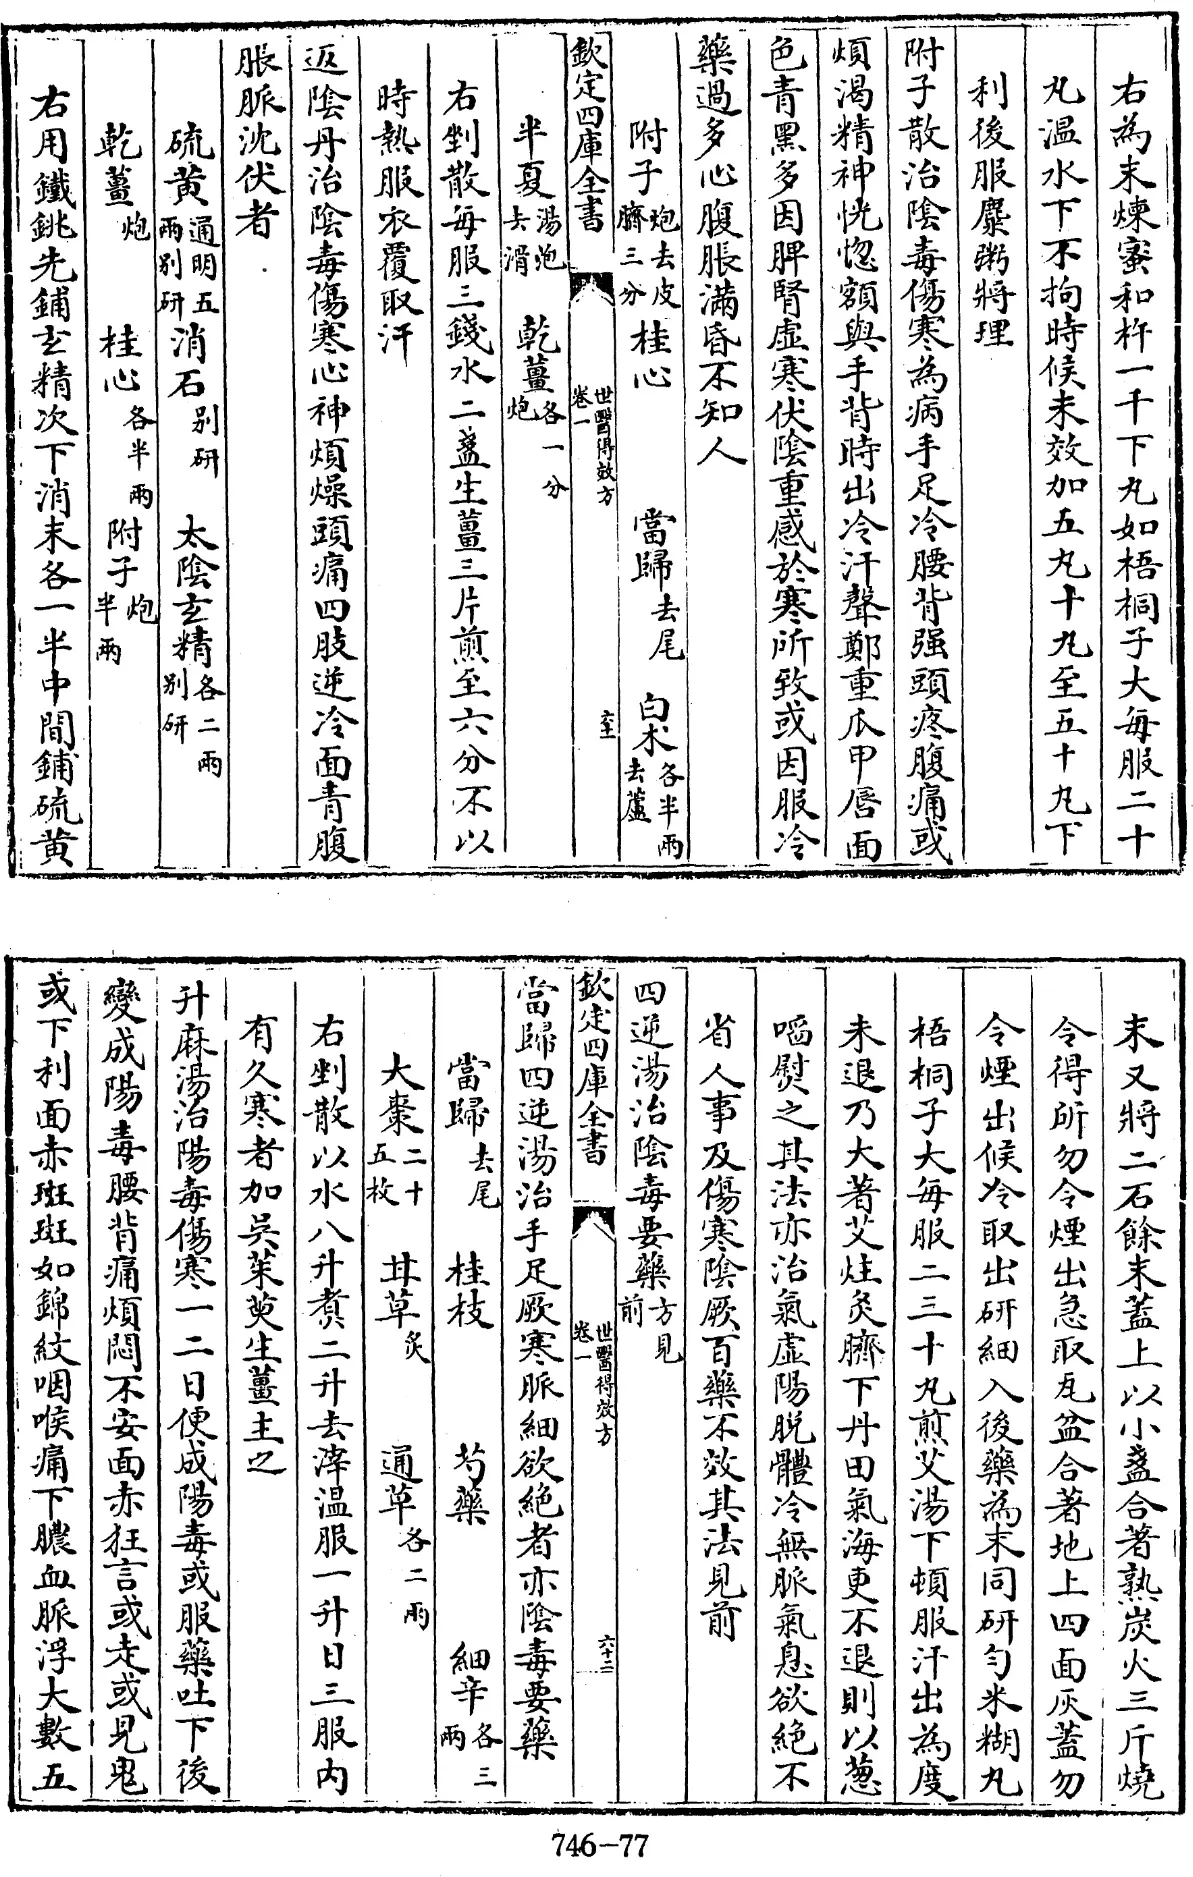 右為末煉蜜和杵一千下丸如梧桐子大每服二十
丸温水下不拘時候未效加五丸十九至五十丸下
利後服麋粥將理
附子散治陰毒傷寒為病手足冷腰背强頭疼腹痛或
煩渴精神恍惚額與手背時出冷汗聲鄭重爪甲唇面
色青黑多因脾腎虛寒伏陰重感於寒所致或因服冷
藥過多心腹脹滿昏不知人
附子炮去皮臍三分 桂心 當歸去尾 白术各半兩去蘆
欽定四庫全書 世醫得效方 卷一 六十一
半夏湯炮去滑 乾薑各一分炮
右剉散每服三錢水二盞生薑三片煎至六分不以
時熱服衣覆取汗
返陰丹治陰毒傷寒心神煩燥頭痛四肢逆冷面青腹
脹脈沈伏者
硫黄通明五兩别研 消石别研 太陰玄精各二兩别研
乾薑炮 桂心各半兩 附子炮半兩
右用鐵銚先鋪玄精次下消末各一半中間鋪硫黄
末又將二石餘末蓋上以小盞合著熟炭火三斤燒
令得所勿令煙出急取瓦盆合著地上四面灰蓋勿
令煙出候冷取出研細入後藥為末同研勻米糊丸
梧桐子大每服二三十丸煎艾湯下頓服汗出為度
未退乃大著艾炷灸臍下丹田氣海更不退則以葱
啒熨之其法亦治氣虛陽脱體冷無脈氣息欲絶不
省人事及傷寒陰厥百藥不效其法見前
四逆湯治陰毒要藥方見前
欽定四庫全書 世醫得效方 卷一 六十二
當歸四逆湯治手足厥寒脈細欲絶者亦陰毒要藥
當歸去尾 桂枝 芍藥 細辛各三兩
大棗二十五枚 甘草炙 通草各二兩
右剉散以水八升煮二升去滓温服一升日三服内
有久寒者加吳茱萸生薑主之
升麻湯治陽毒傷寒一二日便成陽毒或服藥吐下後
變成陽毒腰背痛煩悶不安面赤狂言或走或見鬼
或下利面赤斑斑如錦紋咽喉痛下膿血脈浮大數五
746-77